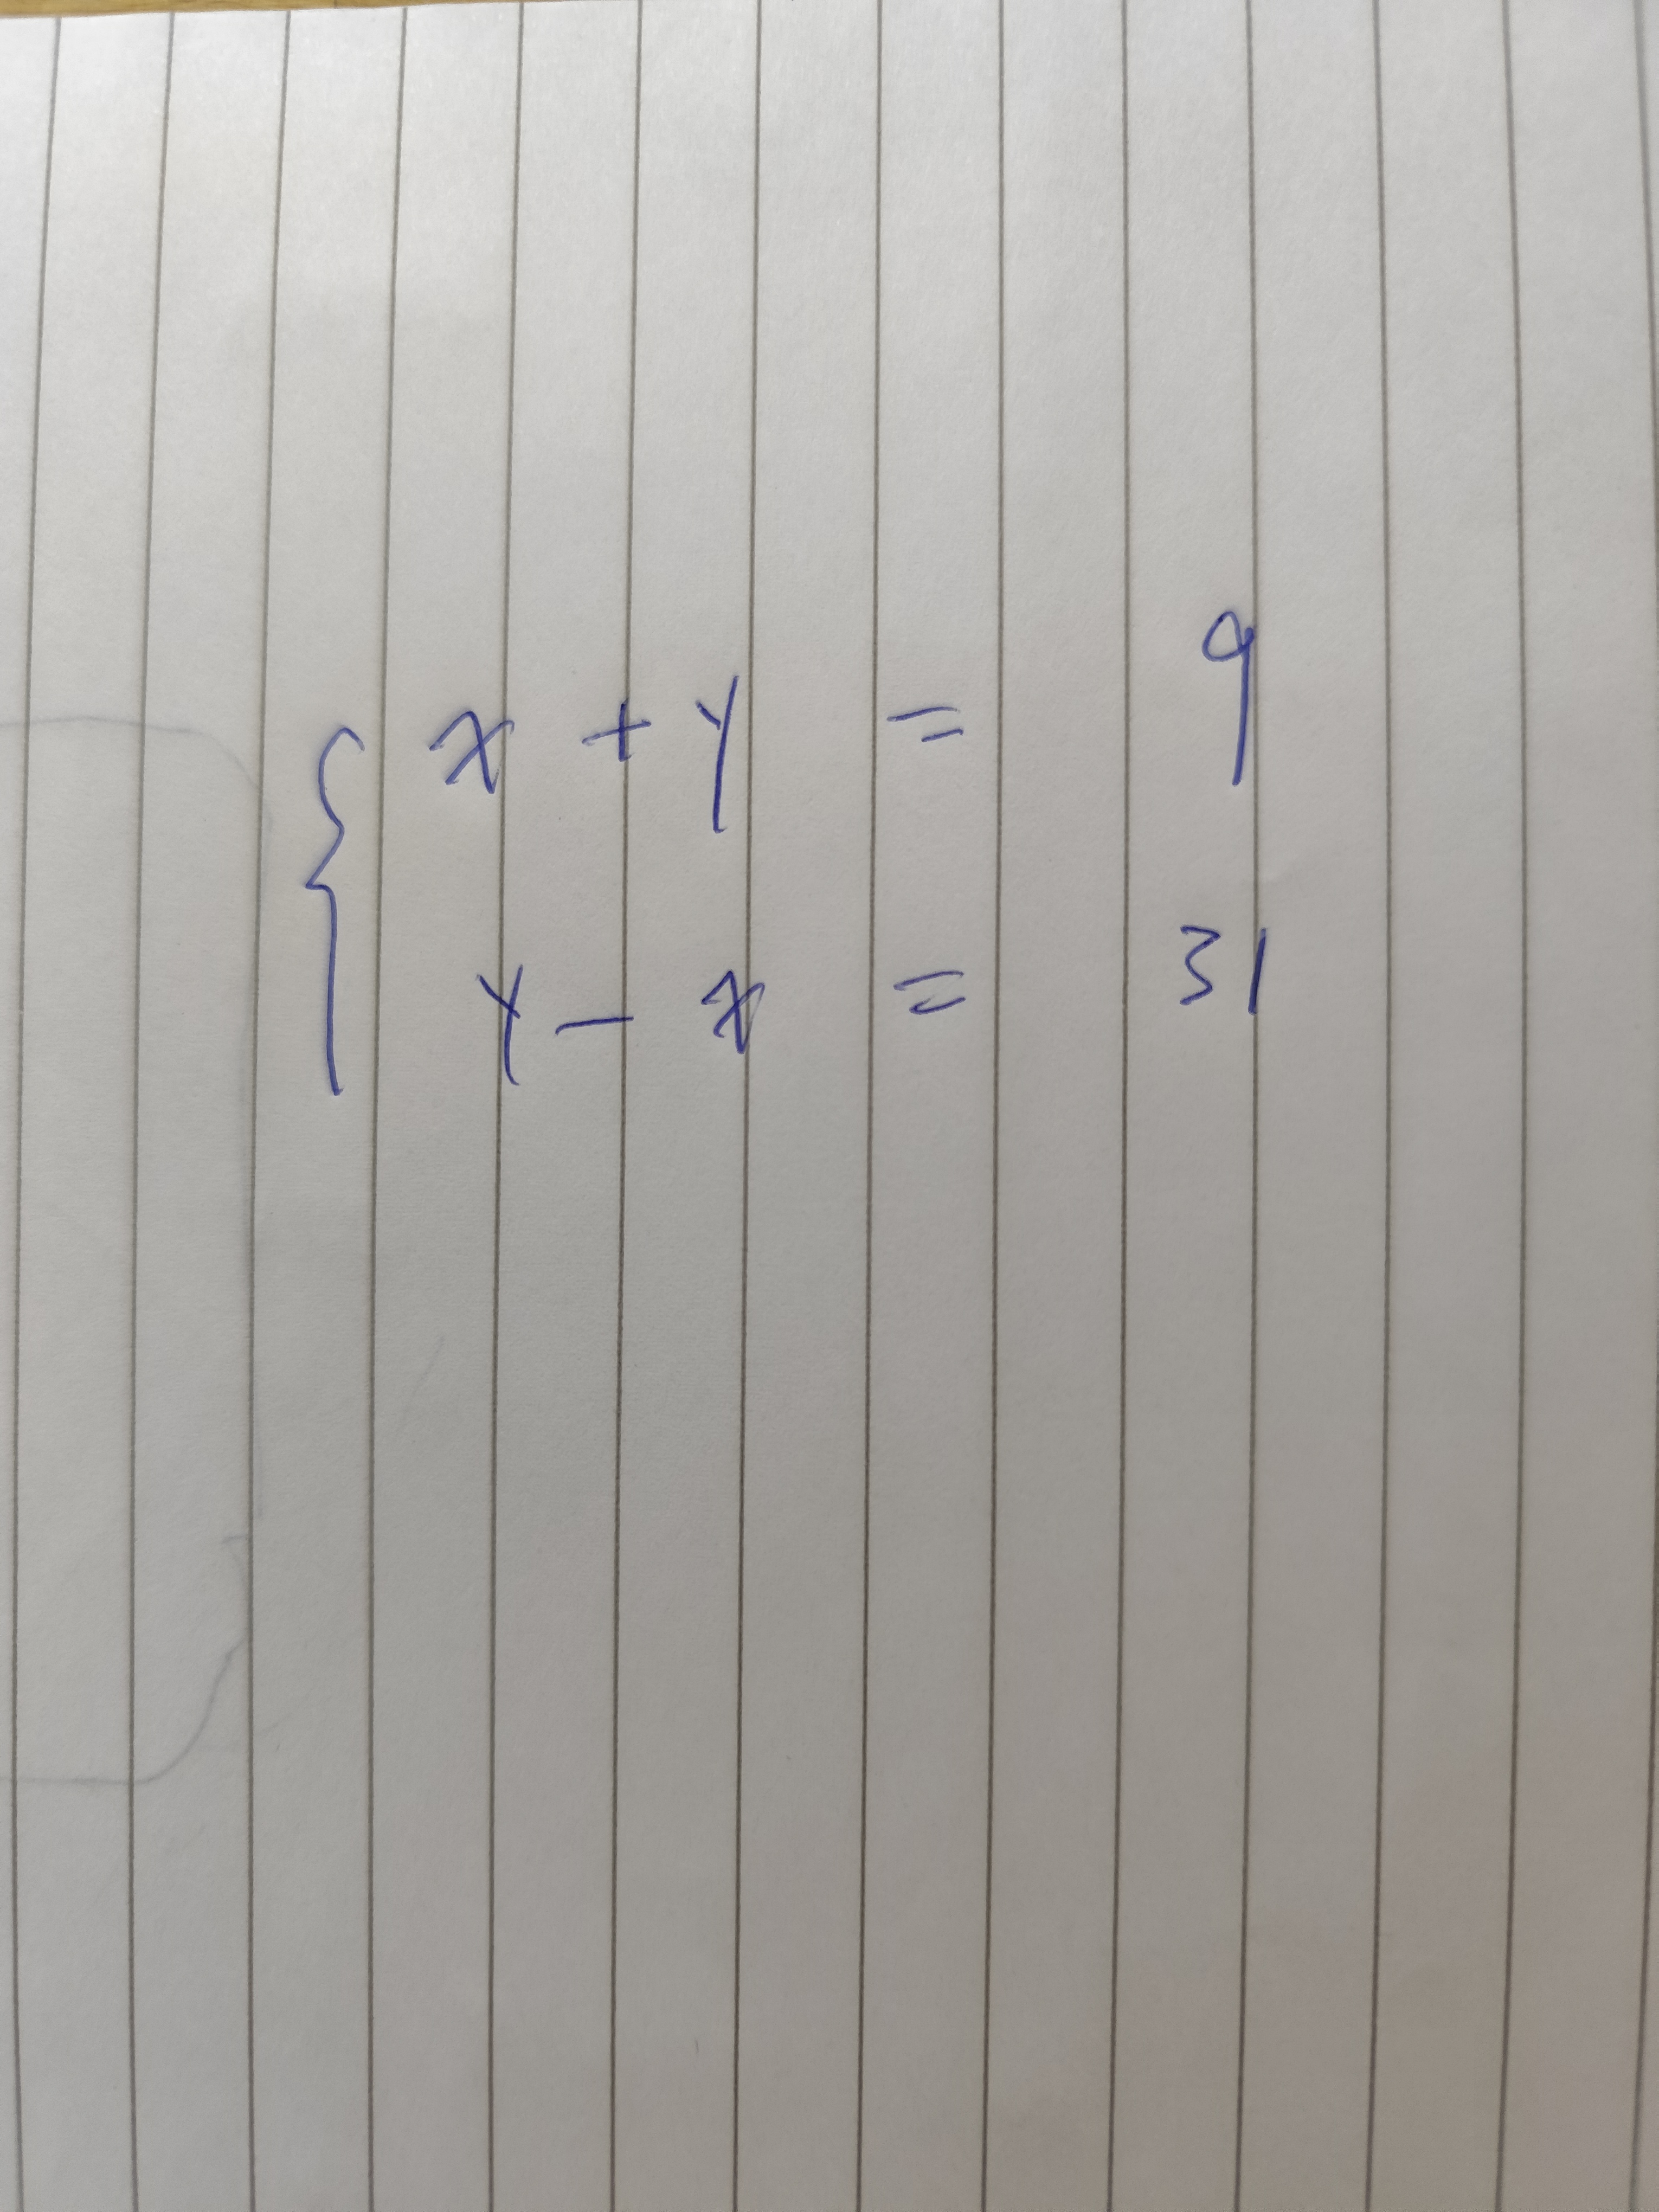 { x + y = 9
y - x = 31